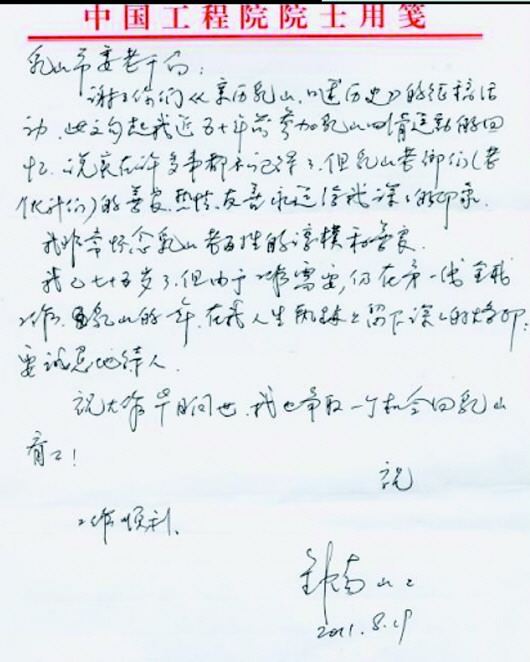 中国工程院院士用笺
乳山市委老干局:
谢谢你们《亲历乳山,口述历史》的征稿活
动,此文勾起我近五十年前参加乳山四清运动的回
忆。说实在许多事都不记得了,但乳山老乡们(老
伙计们)的善良、热情、友善永远给我深深的印象。
我非常怀念乳山老百姓的淳朴和善良.
我已七十五岁了,但由于工作需要,仍在第一线全职
工作,乳山的一年,在我人生 上留下深深的烙印:
要诚恳地待人.
祝大作早日问世,我也争取一个机会回乳山
看看!
祝
工作顺利、
钟南山
2011.8.19